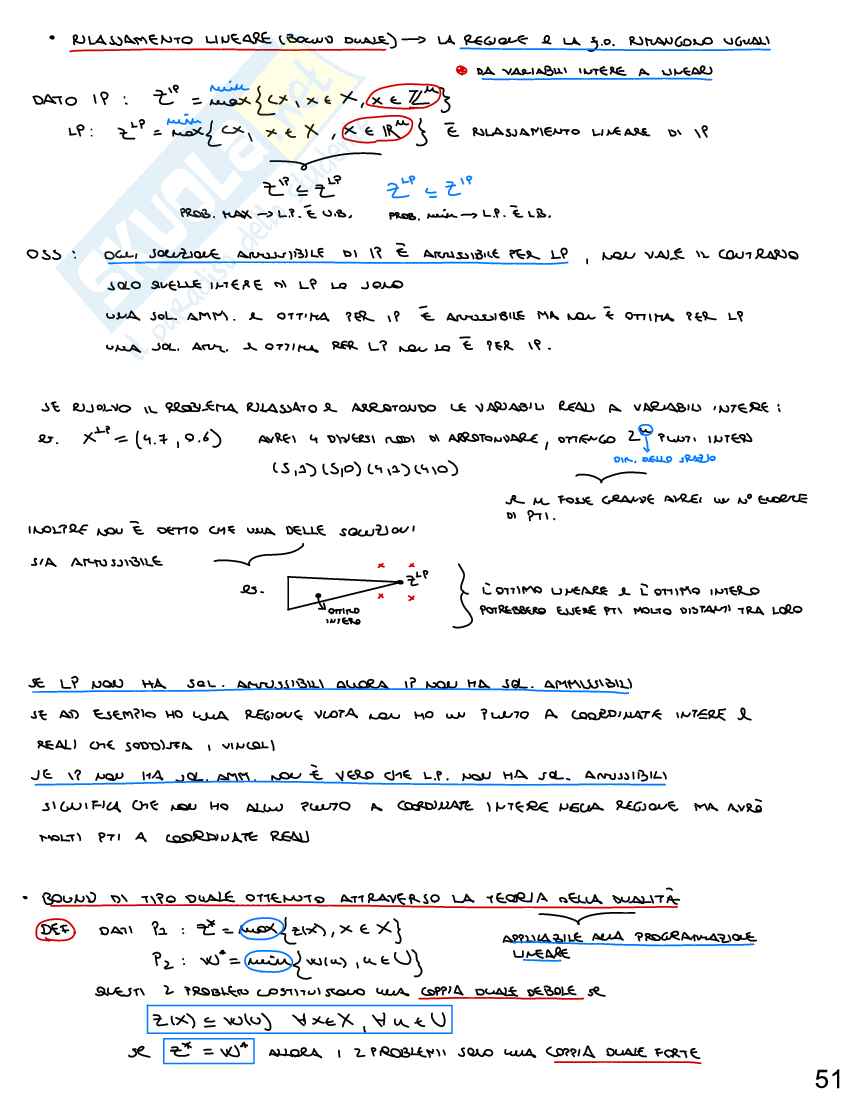 • RILASSAMENTO LINEARE (BOUND DUALE) → LA REGIONE E LA f.o. RIMANGONO UGUALI
• DA VARIABILI INTERE A LINEARI
DATO IP : Z^IP = max min {cx, x ∈ X, x ∈ Z^n}
LP : Z^LP = max min {cx, x ∈ X, x ∈ R^n} È RILASSAMENTO LINEARE DI IP
Z^IP ≤ Z^LP Z^LP ≤ Z^IP
PROB. MAX → L.P. È U.B. PROB. min → L.P. È LB.
OSS : OGNI SOLUZIONE AMMISSIBILE DI IP È AMMISSIBILE PER LP, NON VALE IL CONTRARIO
SOLO QUELLE INTERE DI LP LO SONO
UNA SOL. AMM. E OTTIMA PER IP È AMMISSIBILE MA NON È OTTIMA PER LP
UNA SOL. AMM. E OTTIMA PER LP NON LO È PER IP.
SE RISOLVO IL PROBLEMA RILASSATO E ARROTONDO LE VARIABILI REALI A VARIABILI INTERE :
es. X^LP = (4.7, 0.6) AVREI 4 DIVERSI MODI DI ARROTONDARE, OTTENGO 2^n PUNTI INTERI
DIM. DELLO SPAZIO
(5,1) (5,0) (4,1) (4,0)
SE n FOSSE GRANDE AVREI UN N° ENORME
DI PTI.
INOLTRE NON È DETTO CHE UNA DELLE SOLUZIONI
SIA AMMISSIBILE
es. Z^LP
OTTIMO
INTERO
L'OTTIMO LINEARE E L'OTTIMO INTERO
POTREBBERO ESSERE PTI MOLTO DISTANTI TRA LORO
SE LP NON HA SOL. AMMISSIBILI ALLORA IP NON HA SOL. AMMISSIBILI
SE AD ESEMPIO HO UNA REGIONE VUOTA NON HO UN PUNTO A COORDINATE INTERE E
REALI CHE SODDISFA I VINCOLI
SE IP NON HA SOL. AMM. NON È VERO CHE L.P. NON HA SOL. AMMISSIBILI
SIGNIFICA CHE NON HO ALCUN PUNTO A COORDINATE INTERE NELLA REGIONE MA AVRÒ
MOLTI PTI A COORDINATE REALI
• BOUND DI TIPO DUALE OTTENUTO ATTRAVERSO LA TEORIA DELLA DUALITÀ
APPLICABILE ALLA PROGRAMMAZIONE
LINEARE
DEF DATI P1 : Z* = max {Z(x), x ∈ X}
P2 : W* = min {W(u), u ∈ U}
QUESTI 2 PROBLEMI COSTITUISCONO UNA COPPIA DUALE DEBOLE SE
Z(X) ≤ W(U) ∀x∈X, ∀u∈U
SE Z* = W* ALLORA I 2 PROBLEMI SONO UNA COPPIA DUALE FORTE
51